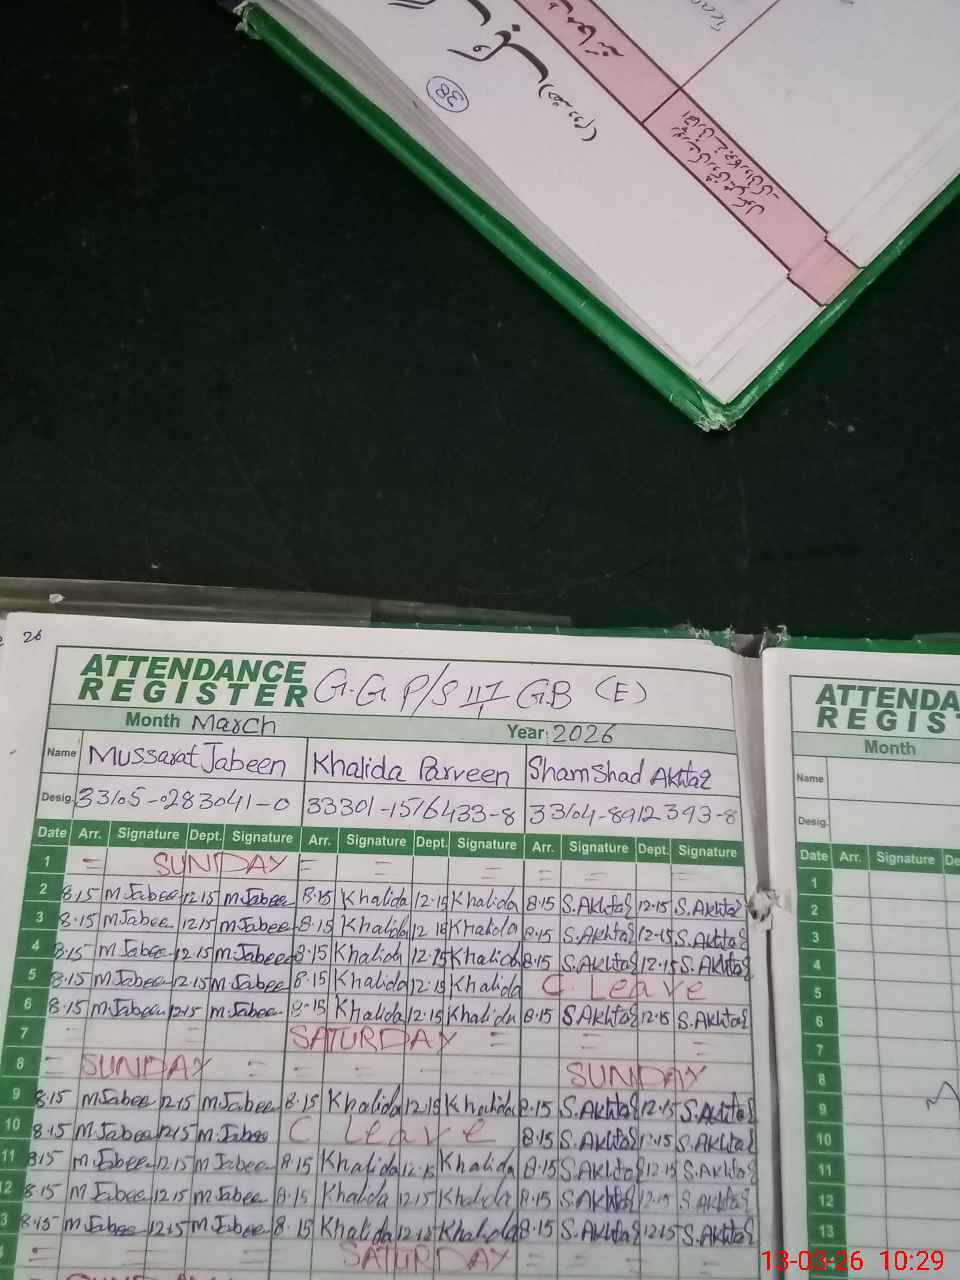 38
(حصہ دوم)
26
ATTENDANCE REGISTER G.G P/S II GB (E)
Month March Year 2026
Name Mussarat Jabeen Khalida Parveen ShamShad Akhtar
Desig. 33105-0283041-0 33301-1516433-8 33104-8912393-8
Date Arr. Signature Dept. Signature Arr. Signature Dept. Signature Arr. Signature Dept. Signature
1 = SUNDAY = = = = = = =
2 8.15 M.Jabee 12.15 M.Jabee 8.15 Khalida 12.15 Khalida 8.15 S.Akhtar 12.15 S.Akhtar
3 8.15 M.Jabee 12.15 M.Jabee 8.15 Khalida 12.15 Khalida 8.15 S.Akhtar 12.15 S.Akhtar
4 8.15 M.Jabee 12.15 M.Jabeed 8.15 Khalida 12.15 Khalida 8.15 S.Akhtar 12.15 S.Akhtar
5 8.15 M.Jabee 12.15 M.Jabee 8.15 Khalida 12.15 Khalida C Leave
6 8.15 M.Jabee 12.15 M.Jabee 8.15 Khalida 12.15 Khalida 8.15 S.Akhtar 12.15 S.Akhtar
7 = = SATURDAY = = =
8 = SUNDAY = = SUNDAY
9 8.15 M.Jabee 12.15 M.Jabee 8.15 Khalida 12.15 Khalida 8.15 S.Akhtar 12.15 S.Akhtar
10 8.15 M.Jabee 12.15 M.Jabee C Leave 8.15 S.Akhtar 12.15 S.Akhtar
11 8.15 M.Jabee 12.15 M.Jabee 8.15 Khalida 12.15 Khalida 8.15 S.Akhtar 12.15 S.Akhtar
12 8.15 M.Jabee 12.15 M.Jabee 8.15 Khalida 12.15 Khalida 8.15 S.Akhtar 12.15 S.Akhtar
3 8.15 M.Jabee 12.15 M.Jabee 8.15 Khalida 12.15 Khalida 8.15 S.Akhtar 12.15 S.Akhtar
= SATURDAY = = = =
ATTENDA
REGIST
Month
Name
Desig.
Date Arr. Signature De
1
2
3
4
5
6
7
8
9
10
11
12
13
13-03-26 10:29